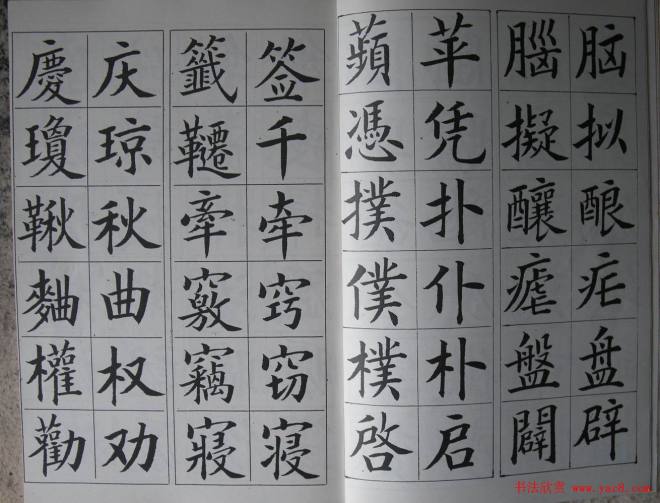 脑拟酿疟盘辟
腦擬釀瘧盤闢
苹凭扑仆朴启
蘋憑撲僕樸啓
签千牵窍窃寝
籤韆牽竅竊寢
庆琼秋曲权劝
慶瓊鞦麯權勸
书法欣赏 www.yac8.com